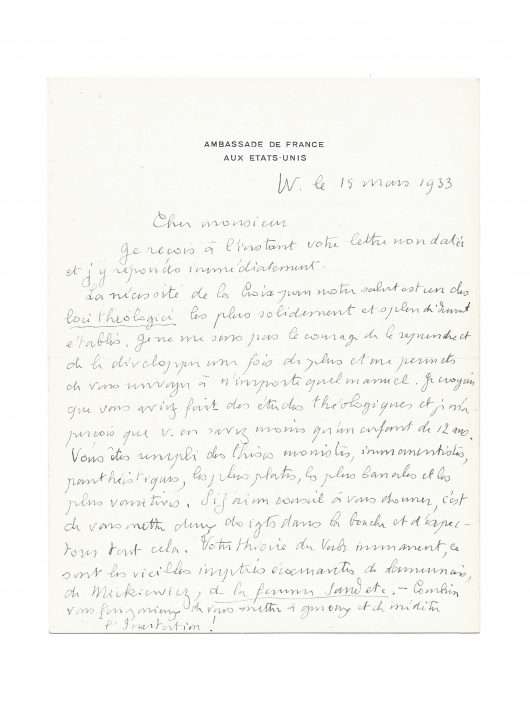 AMBASSADE DE FRANCE
AUX ETATS-UNIS
W. le 15 mars 1933
Cher monsieur
Je reçois à l'instant votre lettre non datée
et j'y réponds immédiatement.
La nécessité de la Croix pour notre salut est un des
loci theologici les plus solidement et splendidement
établis. Je ne me sens pas le courage de le reprendre et
de le développer une fois de plus et me permets
de vous renvoyer à n'importe quel manuel. Je croyais
que vous aviez fait des études théologiques et je m'a-
perçois que v. en savez moins qu'un enfant de 12 ans.
Vous êtes rempli des thèses monistes, immanentistes,
panthéistiques, les plus plates, les plus banales et les
plus vomitives. Si j'ai un conseil à vous donner, c'est
de vous mettre deux doigts dans la bouche et d'expec-
torer tout cela. Votre théorie du Verbe immanent, ce
sont les vieilles inepties de Lamennais,
de Mickiewicz, de la femme Sand etc. — Combien
vous feriez mieux de vous mettre à genoux et de méditer
l'Incarnation !